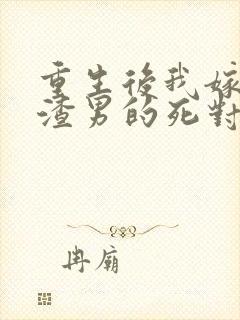 重生後我嫁
渣男的死對
冉廟